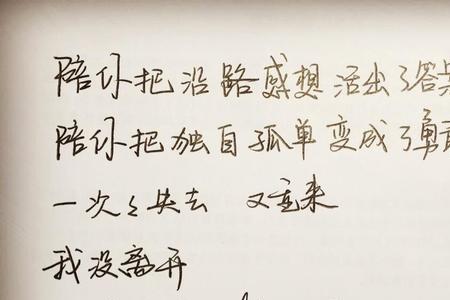 陪你把沿路感想活出了答
陪你把独自孤单变成了勇
一次々失去 又重来
我没离开